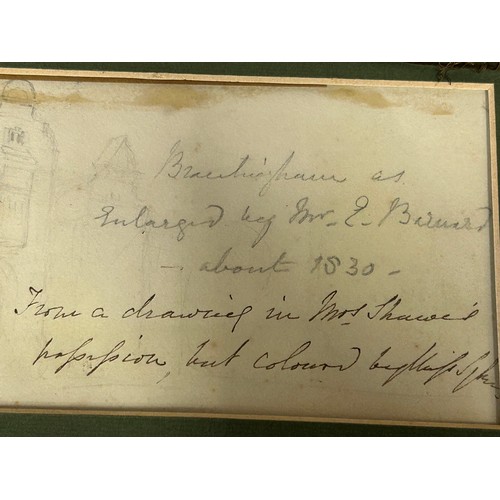 Brantingham as
Enlarged by Mr. E. Barnard
— about 1830 —
From a drawing in Mrs Shawe's
possession, but coloured by Miss